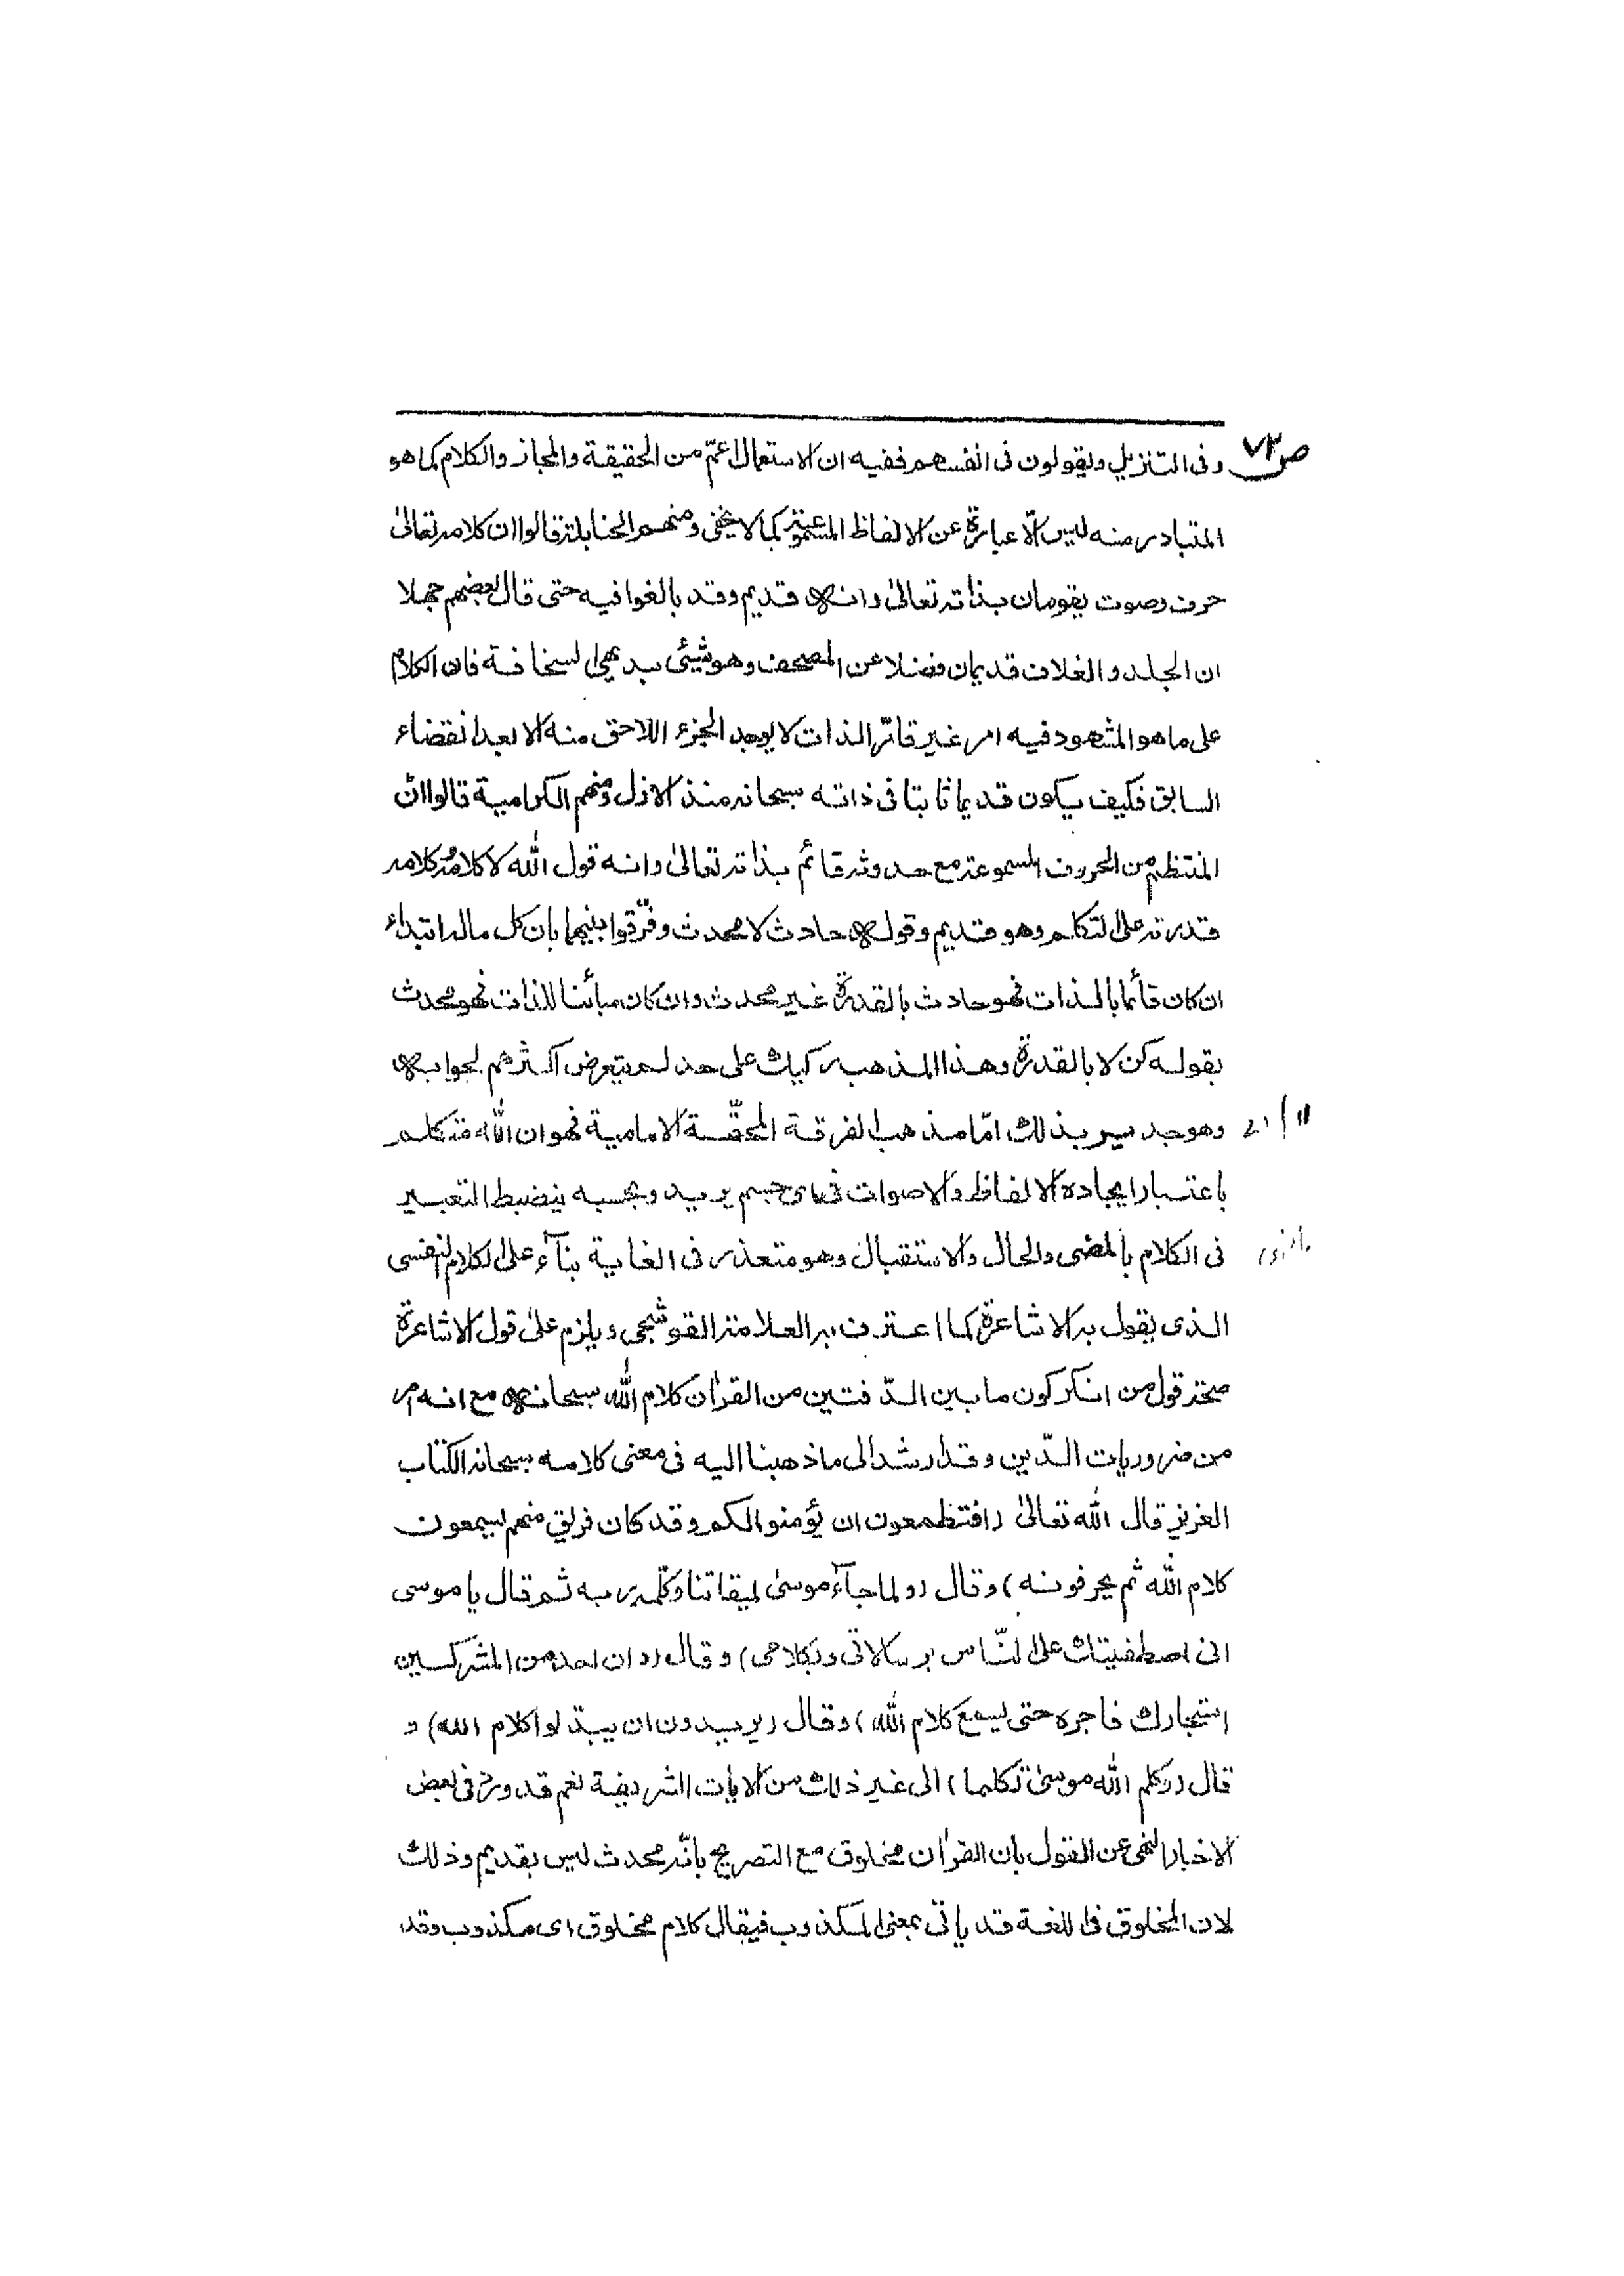 ص۷۳
وفى التنزيل ويقولون فى انفسهم ففيه ان الاستعمال اعمّ من الحقيقة والمجاز والكلام كما هو
المتبادر منه ليس الّا عبارة عن الالفاظ المسموعة كما لا يخفى ومنهم الحنابلة قالوا ان كلامه تعالىٰ
حرف وصوت يقومان بذاته تعالىٰ وانه قديم وقد بالغوا فيه حتى قال بعضهم جهلا
ان الجلد والغلاف قديمان فضلا عن المصحف وهو شيئى بديهى السخافة فان الكلام
على ما هو المشهود فيه امر غير قارّ الذات لا يوجد الجزء اللاحق منه الا بعد انقضاء
السابق فكيف يكون قديما ثابتا فى ذاته سبحانه منذ الازل ومنهم الكرامية قالوا ان
المنتظم من الحروف المسموعة مع حدوثه قائم بذاته تعالىٰ وانه قول الله لا كلامه كلامه
قدرته على التكلم وهو قديم وقوله حادث لا محدث وفرّقوا بينهما بان كل ماله ابتداء
ان كان قائما بالذات فهو حادث بالقدرة غير محدث وان كان مبائنا للذات فهو محدث
بقوله كن لا بالقدرة وهذا المذهب ركيك على حد لم يتعرض اكثرهم لجوابه
وهو جدير بذلك امّا مذهب الفرقة المحقّة الامامية فهو ان الله متكلم
باعتبار ايجاده الالفاظ والاصوات فى اى جسم يريد وبحسبه ينضبط التعبير
فى الكلام بالمضى والحال والاستقبال وهو متعذر فى الغاية بنآء على الكلام النفسى
الذى يقول به الاشاعرة كما اعترف به العلامة القوشجى ويلزم علىٰ قول الاشاعرة
صحة قول من انكر كون ما بين الدّفتين من القرآن كلام الله سبحانه مع انه امر
من ضروريات الدّين وقد ارشد الى ما ذهبنا اليه فى معنى كلامه سبحانه الكتاب
العزيز قال الله تعالىٰ (افتطمعون ان يؤمنوا لكم وقد كان فريق منهم يسمعون
كلام الله ثم يحرفونه) وقال (ولما جآء موسىٰ لميقاتنا وكلّمه ربه ثم قال يا موسى
انى اصطفيتك على النّاس برسالاتى وبكلامى) وقال (وان احد من المشركين
استجارك فاجره حتى يسمع كلام الله) وقال (يريدون ان يبدّلوا كلام الله) و
قال (وكلم الله موسىٰ تكليما) الى غير ذلك من الايات الشريفة نعم قد ورد فى بعض
الاخبار النهى عن القول بان القرآن مخلوق مع التصريح بانّه محدث ليس بقديم وذلك
لان المخلوق فى اللغة قد ياتى بمعنى المكذوب فيقال كلام مخلوق اى مكذوب وقد